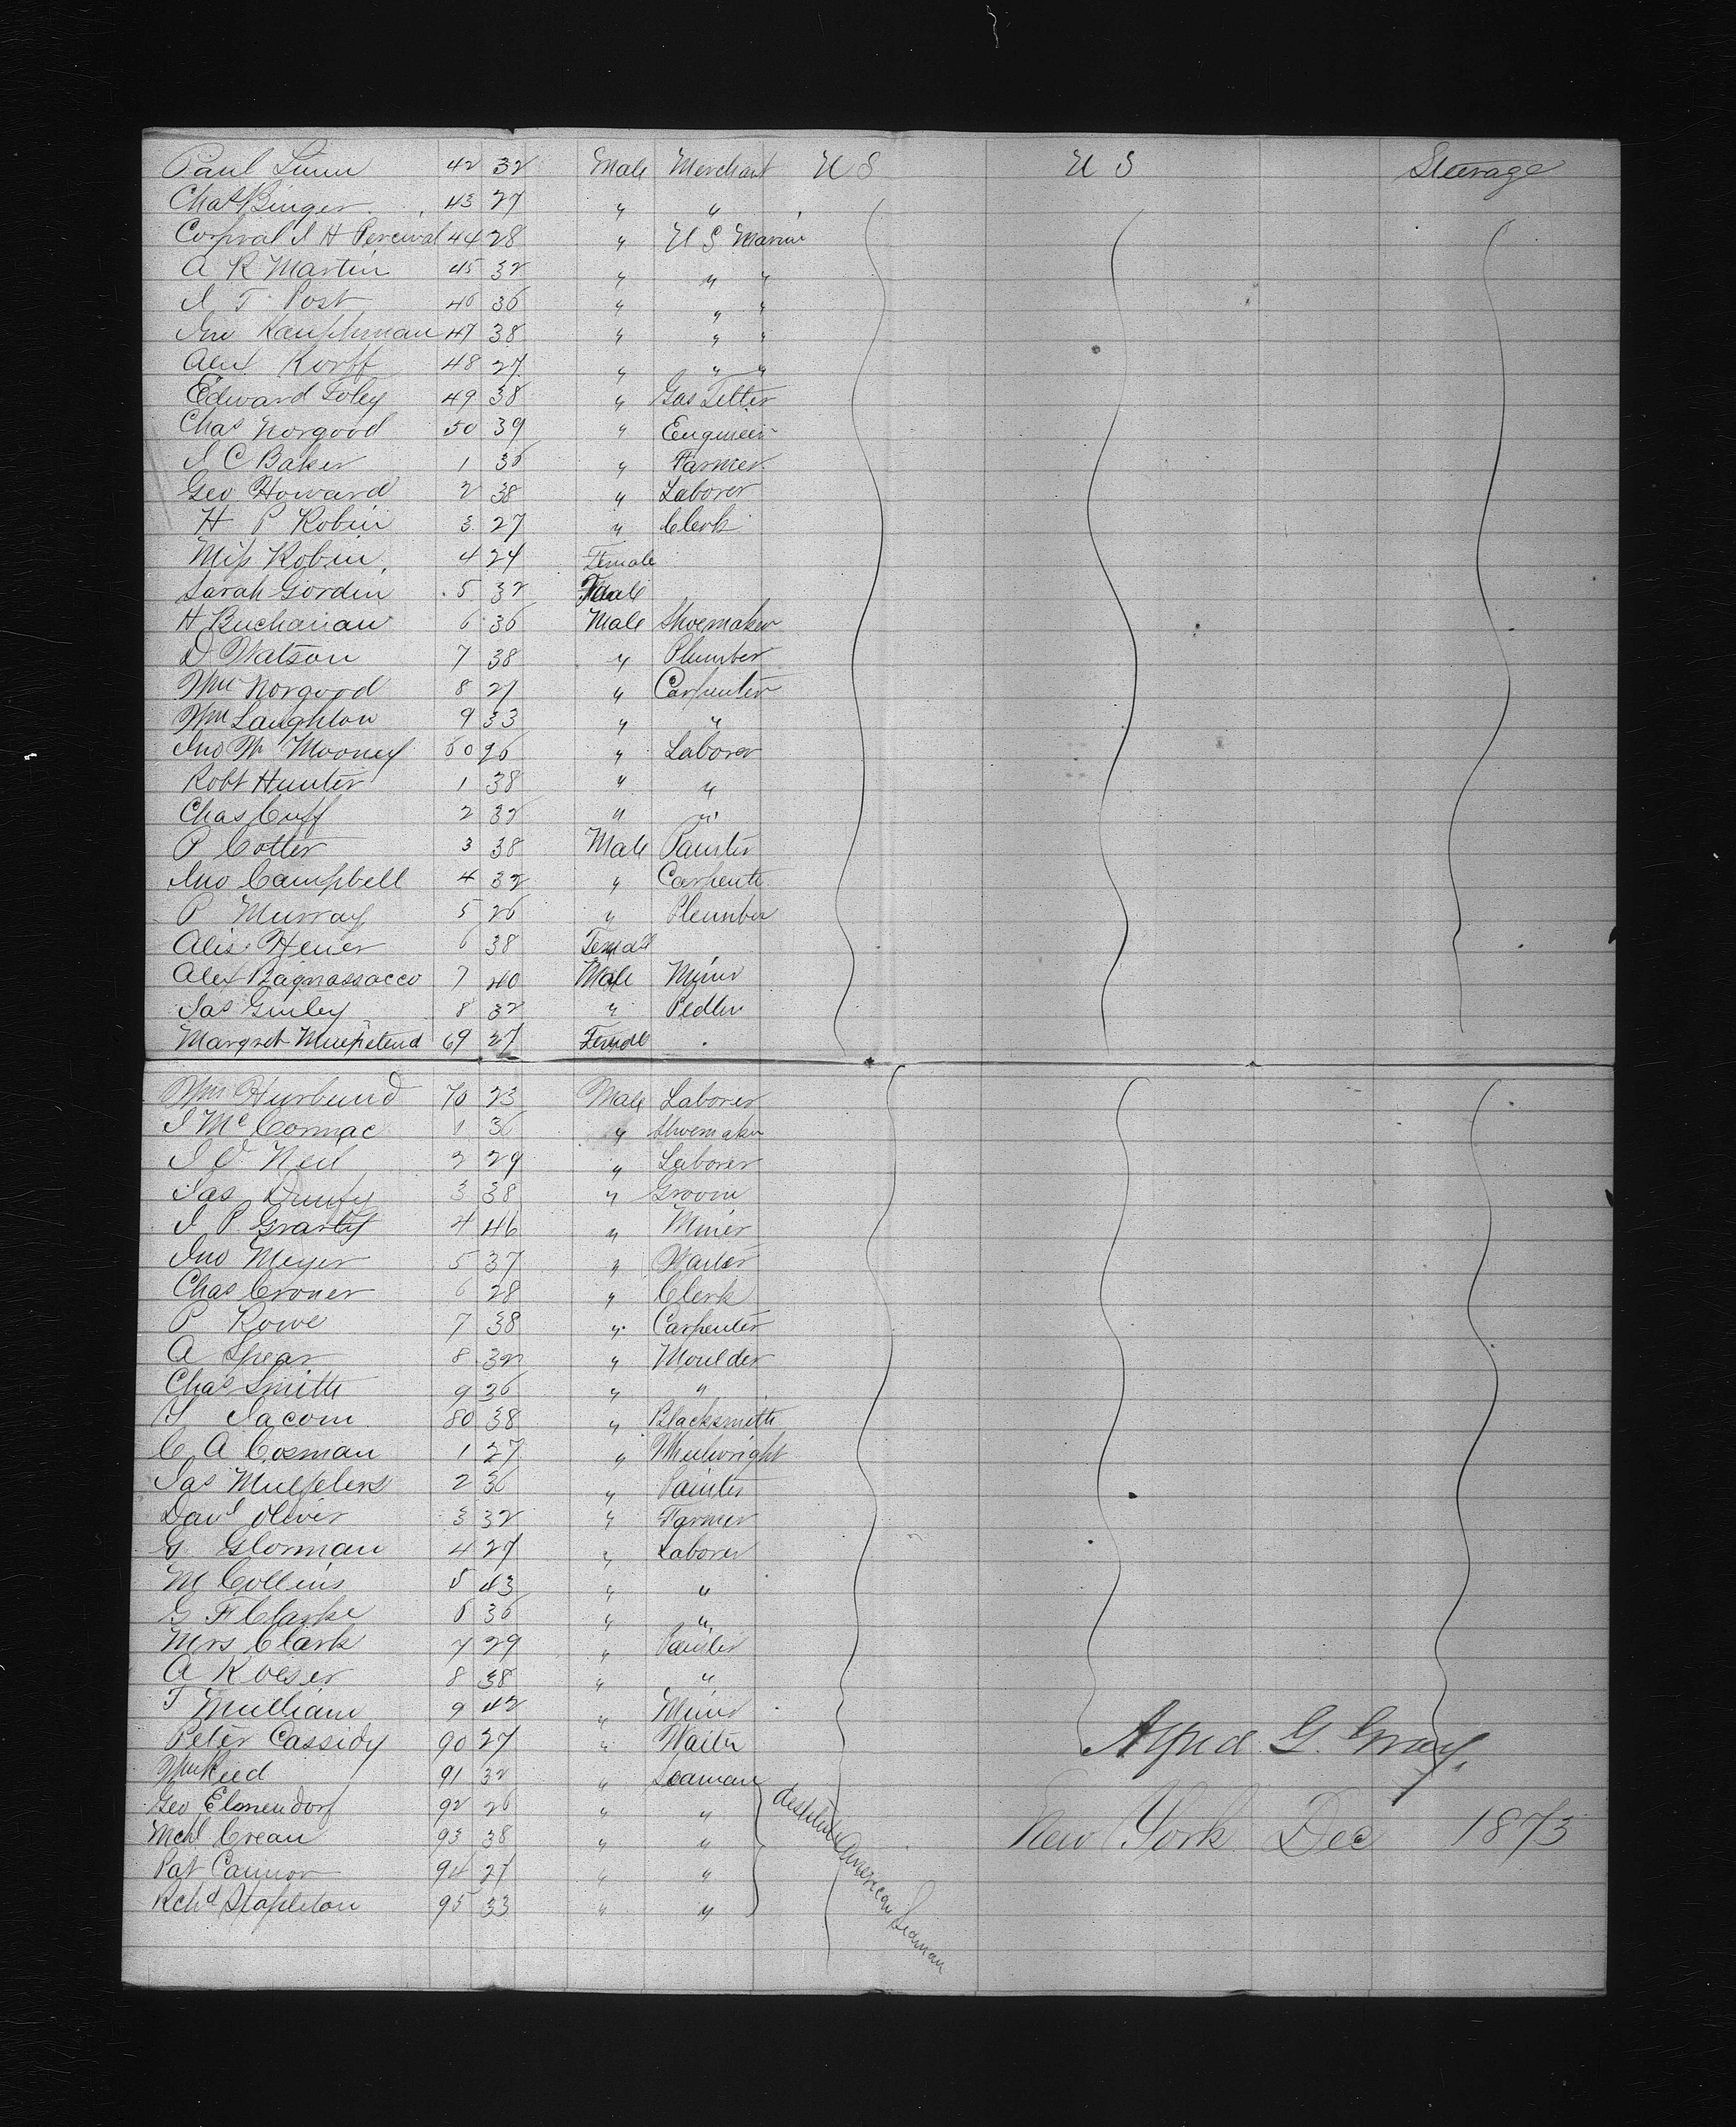 Paul Linn 42 32 Male Merchant U S U S Steerage
Chas Binger 43 27 " "
Corpral J H Percival 44 28 " U S Marine
A R Martin 45 32 " " "
J T Post 46 36 " " "
Jno Kauphman 47 38 " " "
Alex Korff 48 27 " " "
Edward Foley 49 38 " Gas Fitter
Chas Norgood 50 39 " Engineer
J C Baker 1 36 " Farmer
Geo Howard 2 38 " Laborer
H P Robin 3 27 " Clerk
Miss Robin 4 24 Female
Sarah Gordin 5 32 Female
H Buchanan 6 36 Male Shoemaker
D Watson 7 38 " Plumber
Wm Norgood 8 27 " Carpenter
Wm Laughton 9 33 " "
Jno W Mooney 60 26 " Laborer
Robt Hunter 1 38 " "
Chas Cuff 2 32 " "
P Cotter 3 38 Male Painter
Jno Campbell 4 32 " Carpente
P Murray 5 26 " Plumber
Alis Heuer 6 38 Female
Alex Bagnassacco 7 40 Male Miner
Jas Ginley 8 32 " Pedler
Margret 69 27 Female
Wm Hurbund 70 23 Male Laborer
J McCormac 1 36 " Shoemaker
J O Neil 2 29 " Laborer
Jas Dunfy 3 38 " Groom
J P Grarty 4 46 " Miner
Jno Meyer 5 37 " Waiter
Chas Croner 6 28 " Clerk
P Rowe 7 38 " Carpenter
A Spear 8 32 " Moulder
Chas Smith 9 36 " "
Jacom 80 38 " Blacksmith
C A Cosman 1 27 " Wheelwright
Jas 2 36 " Painter
Davd Oliver 3 32 " Farmer
G Glorman 4 27 " Laborer
M Collins 5 43 " "
G F Clarke 6 36 " "
Mrs Clark 7 29 " Painter
A Koeser 8 38 " "
T Mulliam 9 42 " Miner
Peter Cassidy 90 27 " Waiter
Wm Reed 91 32 " Seaman
Geo Elmendorf 92 26 " "
Mchl Crean 93 38 " "
Pat Cannor 94 27 " "
Rchd Stapleton 95 33 " "
destitute American Seaman
Alfred G. Gray.
New York Dec 1873